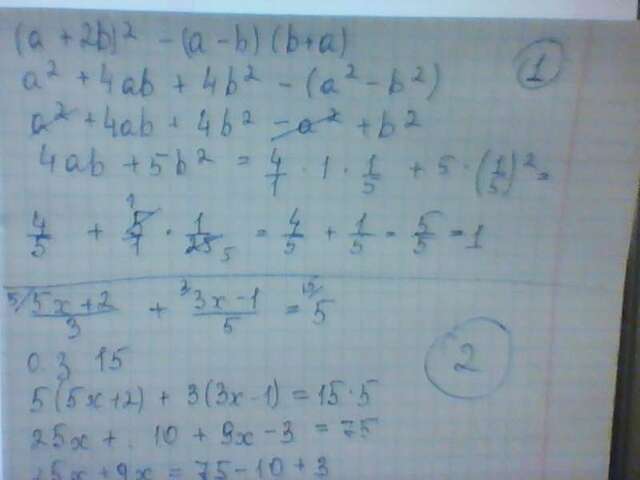 (a + 2b)² - (a - b) (b + a)
1
a² + 4ab + 4b² - (a² - b²)
a² + 4ab + 4b² - a² + b²
4ab + 5b² = 4/1 · 1 · 1/5 + 5 · (1/5)² =
4/5 + 5/1 · 1/25 = 4/5 + 1/5 = 5/5 = 1
5/ 5x + 2 / 3 + 3/ 3x - 1 / 5 = 15/ 5
2
о. з 15
5(5x + 2) + 3(3x - 1) = 15 · 5
25x + 10 + 9x - 3 = 75
25x + 9x = 75 - 10 + 3